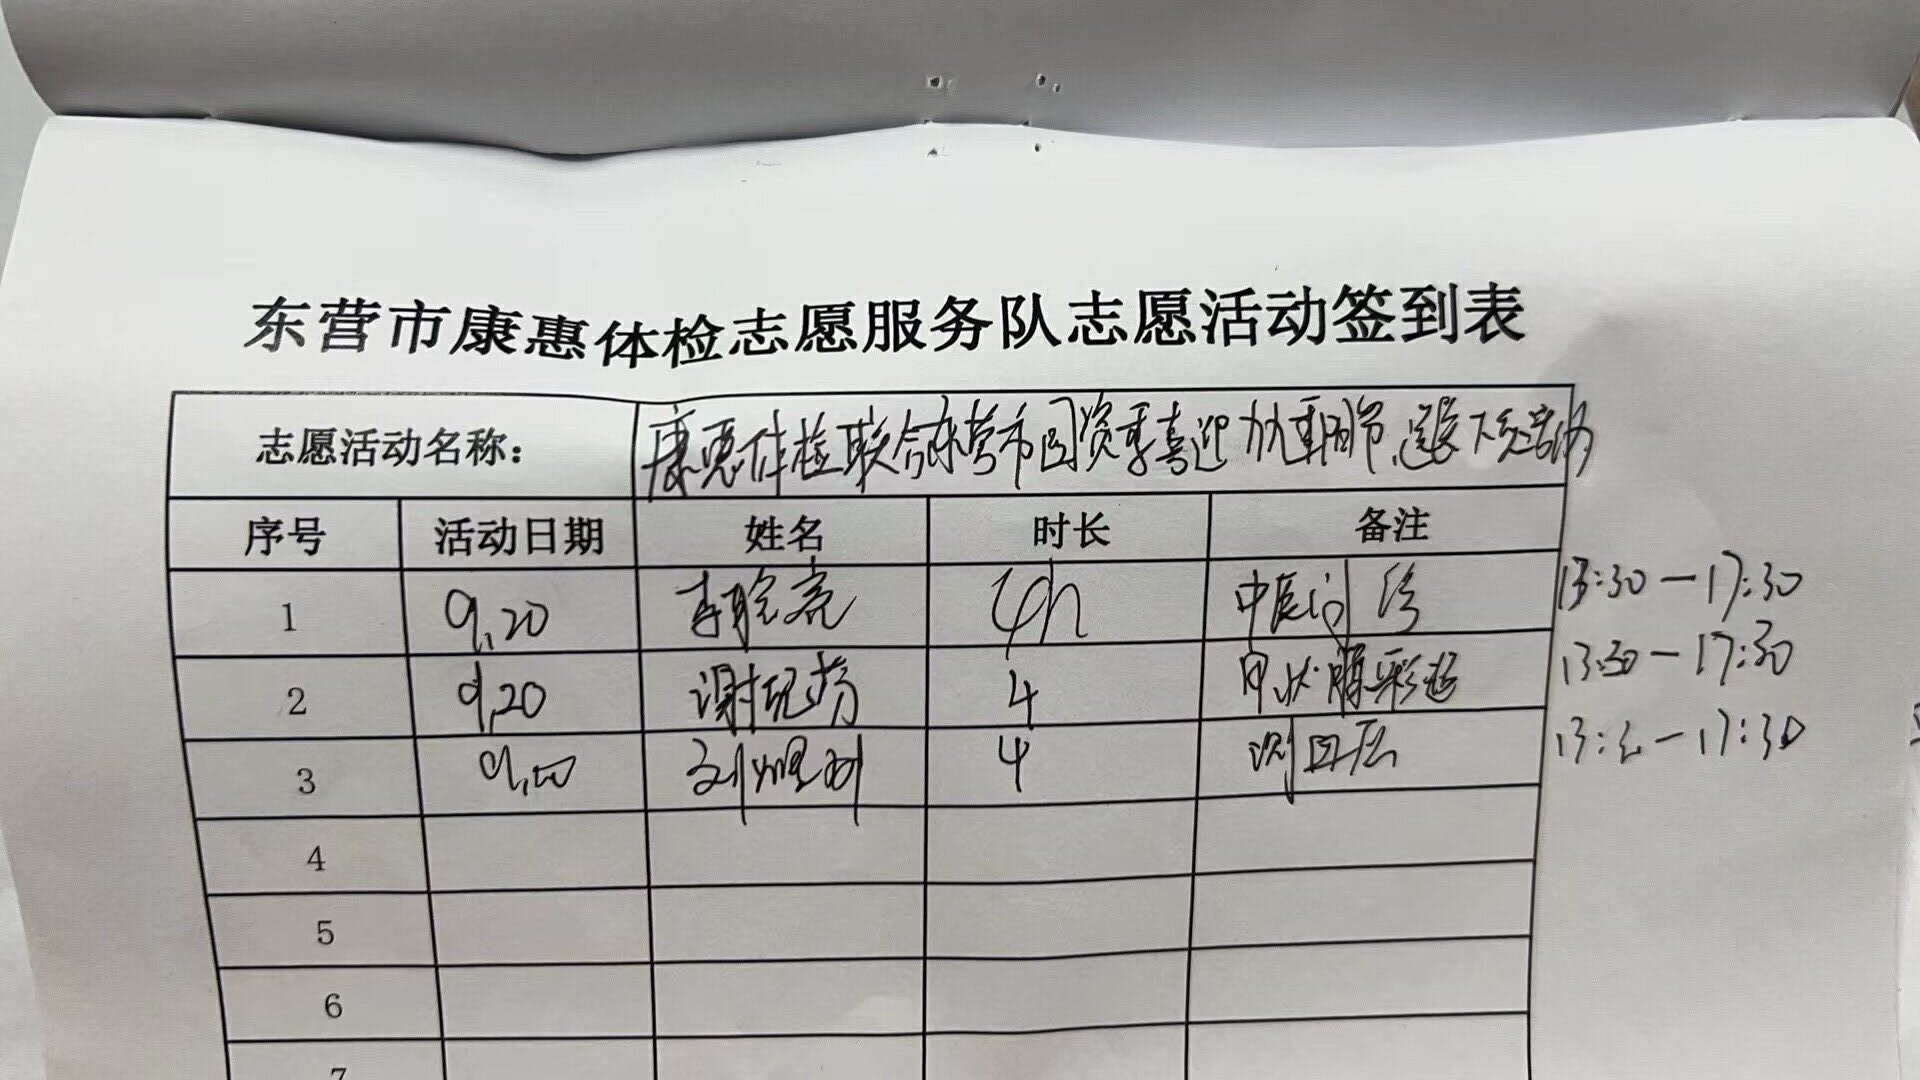 东营市康惠体检志愿服务队志愿活动签到表
志愿活动名称： 康惠体检联合东营市国资委喜迎九九重阳节,送医下乡活动
序号 活动日期 姓名 时长 备注
1 9.20 李晓亮 4h 中医问诊 13:30-17:30
2 9.20 谢 芬 4 甲状腺彩超 13:30-17:30
3 9.20 刘 4 测血压 13:30-17:30
4
5
6
7